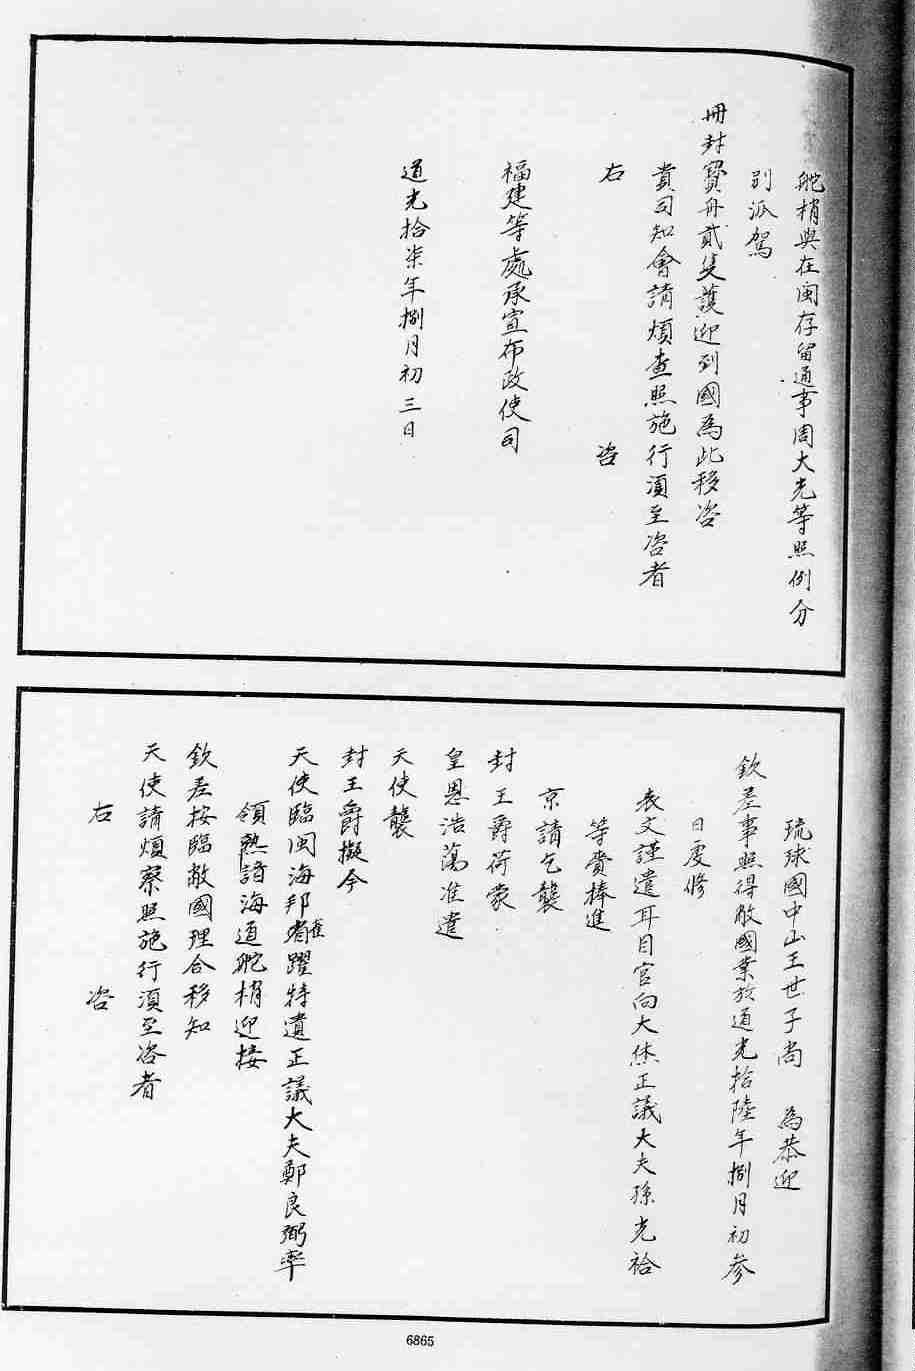 舵梢與在閩存留通事周大光等照例分
別派駕
冊封寶舟貳隻護迎到國為此移咨
貴司知會請煩查照施行須至咨者
右　咨
福建等處承宣布政使司
道光拾柒年捌月初三日
琉球國中山王世子尚　為恭迎
欽差事照得敝國業於道光拾陸年捌月初參
日虔修
表文謹遣耳目官向大烋正議大夫孫光裕
等賫捧進
京請乞襲
封王爵荷蒙
皇恩浩蕩准遣
天使襲
封王爵擬今
天使臨閩海邦雀躍特遣正議大夫鄭良弼率
領熟諳海道舵梢迎接
欽差按臨敝國理合移知
天使請煩察照施行須至咨者
右　咨
6865